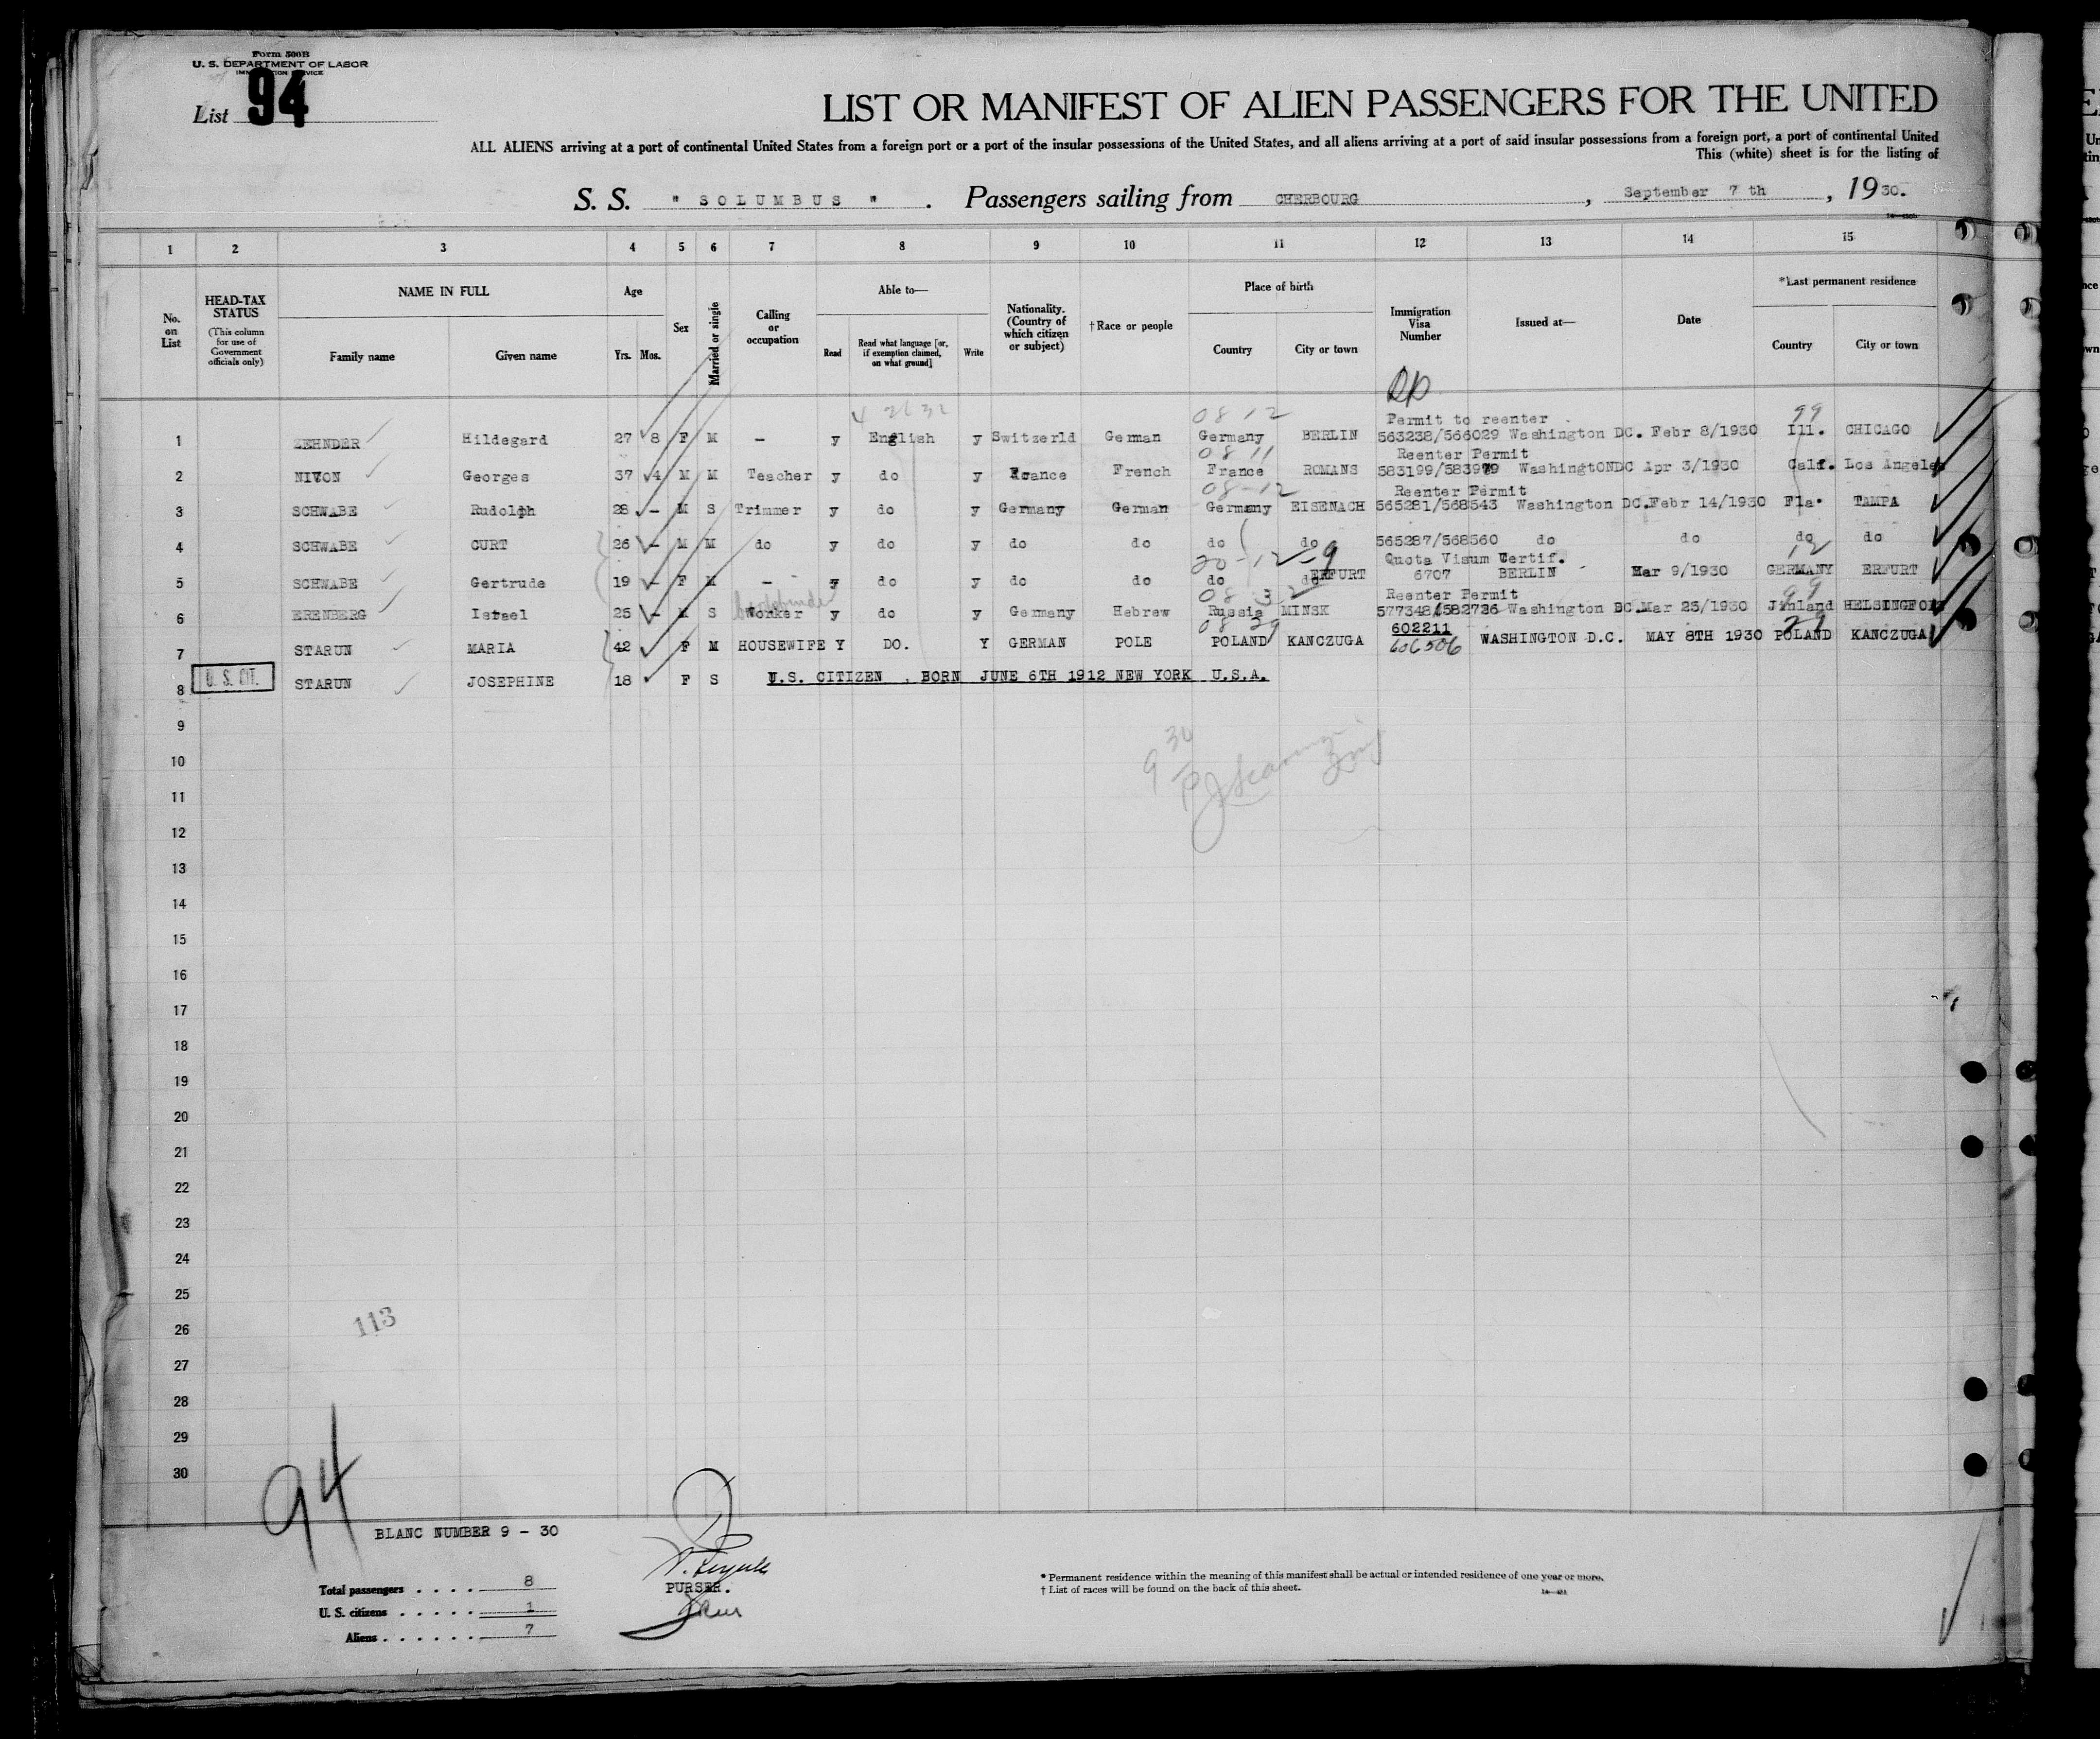 Form 500B
U. S. DEPARTMENT OF LABOR
List 94
LIST OR MANIFEST OF ALIEN PASSENGERS FOR THE UNITED
ALL ALIENS arriving at a port of continental United States from a foreign port or a port of the insular possessions of the United States, and all aliens arriving at a port of said insular possessions from a foreign port, a port of continental United
This (white) sheet is for the listing of
S. S. " SOLUMBUS " . Passengers sailing from CHERBOURG , September 7 th , 1930.
1 2 3 4 5 6 7 8 9 10 11 12 13 14 15
No. on List
HEAD-TAX STATUS (This column for use of Government officials only)
NAME IN FULL
Family name Given name
Age
Yrs. Mos.
Sex
Married or single
Calling or occupation
Able to—
Read Read what language [or, if exemption claimed, on what ground] Write
Nationality. (Country of which citizen or subject)
†Race or people
Place of birth
Country City or town
Immigration Visa Number
Issued at—
Date
*Last permanent residence
Country City or town
08 12 Permit to reenter 99
1 ZEHNDER Hildegard 27 8 F M - y English y Switzerld German Germany BERLIN 563238/566029 Washington DC. Febr 8/1930 Ill. CHICAGO
08 11 Reenter Permit
2 Georges 37 4 M M Teacher y do y France French France ROMANS 583199/583979 WashingtONDC Apr 3/1930 Calf. Los Angeles
08-12 Reenter Permit
3 SCHWABE Rudolph 28 - M S Trimmer y do y Germany German Germany EISENACH 565281/568543 Washington DC.Febr 14/1930 Fla. TAMPA
4 SCHWABE CURT 26 - M M do y do y do do do do 565287/568560 do do do do
20-12-9 Quota Visum Certif. 12
5 SCHWABE Gertrude 19 - F M - y do y do do do ERFURT 6707 BERLIN Mar 9/1930 GERMANY ERFURT
08 3 2 Reenter Permit 99
6 ERENBERG Israel 25 - M S Worker y do y Germany Hebrew Russia MINSK 577348/582726 Washington DC.Mar 25/1930 Jinland HELSINGFORS
08 29 602211 29
7 STARUN MARIA 42 F M HOUSEWIFE Y DO. Y GERMAN POLE POLAND KANCZUGA 606506 WASHINGTON D.C. MAY 8TH 1930 POLAND KANCZUGA
8 U. S. CIT. STARUN JOSEPHINE 18 F S U.S. CITIZEN , BORN JUNE 6TH 1912 NEW YORK U.S.A.
9
10
11
12
13
14
15
16
17
18
19
20
21
22
23
24
25
26
113
27
28
29
30
94
BLANC NUMBER 9 - 30
Total passengers . . . . 8
U. S. citizens . . . . . 1
Aliens . . . . . . 7
PURSER.
* Permanent residence within the meaning of this manifest shall be actual or intended residence of one year or more.
† List of races will be found on the back of this sheet.